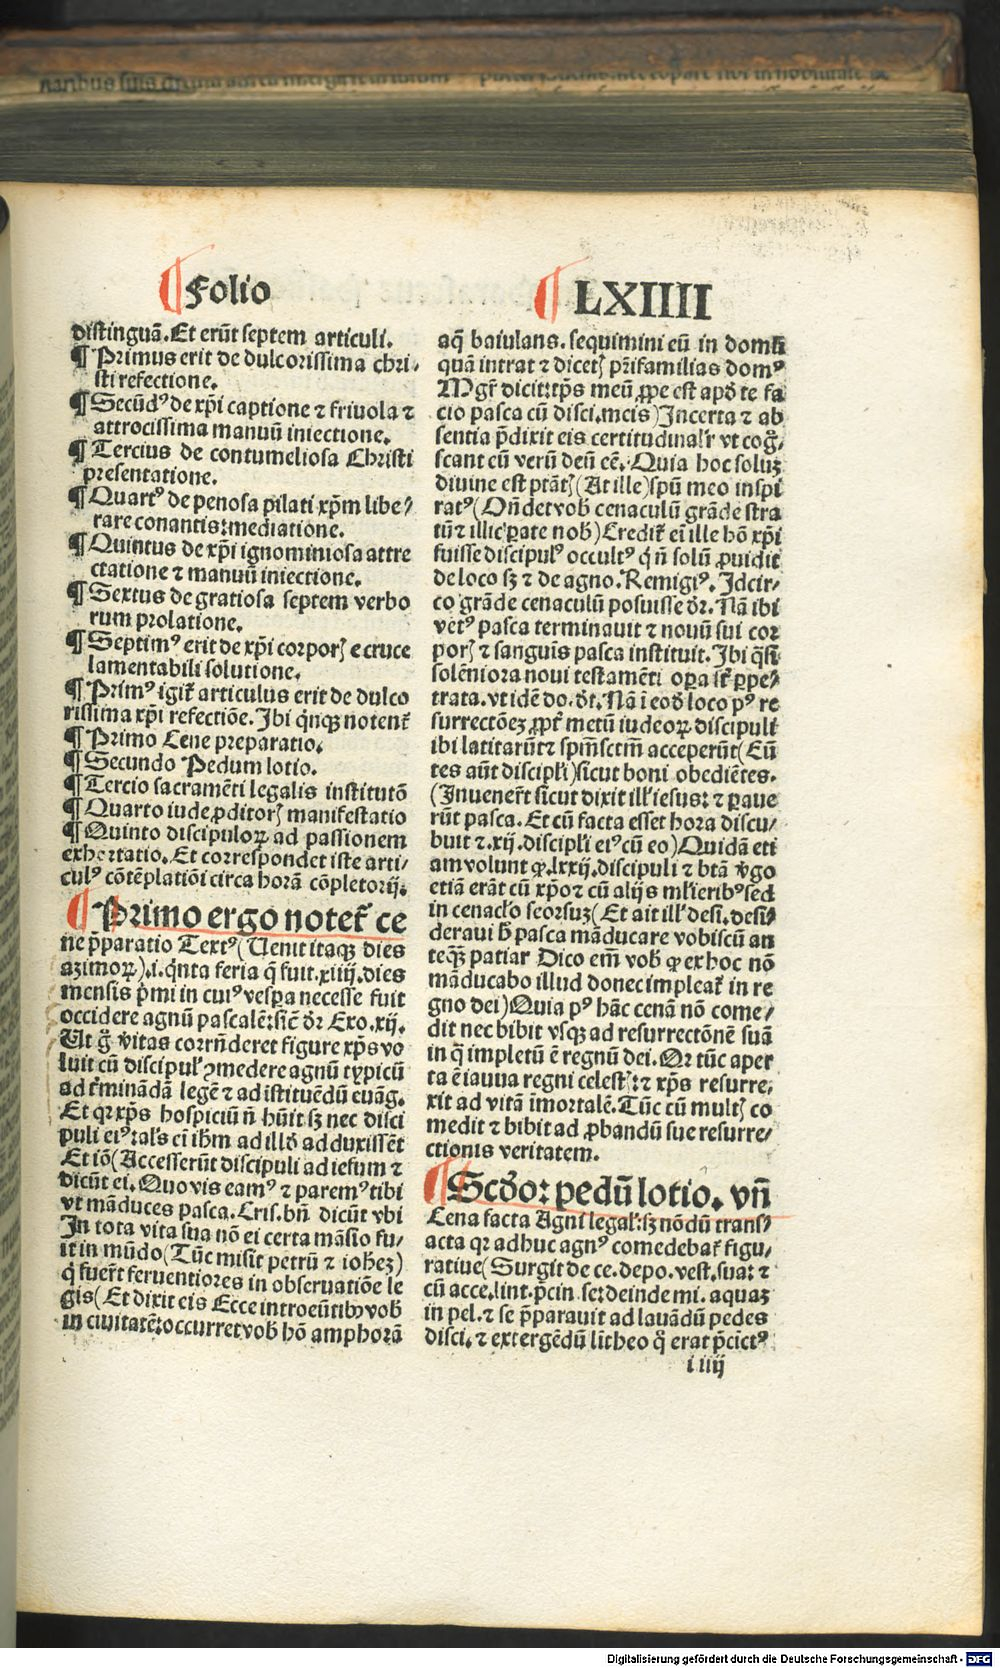 ¶ Folio
¶ LXIIII
distinguā. Et erūt septem articuli.
¶ Primus erit de dulcorissima chri⸗
sti refectione.
¶ Secūdꝰ de xp̄i captione ⁊ friuola ⁊
attrocissima manuū iniectione.
¶ Tercius de contumeliosa Christi
presentatione.
¶ Quartꝰ de penosa pilati xp̄m libe⸗
rare conantis: mediatione.
¶ Quintus de xp̄i ignominiosa attre
ctatione ⁊ manuū iniectione.
¶ Sextus de gratiosa septem verbo
rum prolatione.
¶ Septimꝰ erit de xp̄i corporꝭ e cruce
lamentabili solutione.
¶ Primꝰ igit᷑ articulus erit de dulco
rissima xp̄i refectiōe. Ibi qͥnqꝫ notent᷑
¶ Primo Cene preparatio.
¶ Secundo Pedum lotio.
¶ Tercio sacramēti legalis institutō
¶ Quarto iude ꝓditorꝭ manifestatio
¶ Quinto discipuloꝝ ad passionem
exhortatio. Et correspondet iste arti⸗
culꝰ cōtēplatiōi circa horā cōpletorij.
¶ Primo ergo notet᷑ ce
ne p̄paratio Textꝰ (Uenit itaqꝫ dies
azimoꝝ) .i. qͥnta feria q̄ fuit .xiiij. dies
mensis p̄mi in cuiꝰ vesꝑa necesse fuit
occidere agnū pascalē: sic̄ dr̄ Exo. xij.
Ut g̊ v̄itas corrn̄deret figure xp̄s vo
luit cū discipul' ꝯmedere agnū typicū
ad t᷑minādā legē ⁊ ad istituēdū euāg.
Et qꝛ xp̄s hospiciū n̄ hūit sꝫ nec disci
puli eiꝰ: als̄ ei ih̄m ad illd̄ adduxissēt
Et iō (Accesserūt discipuli ad iesum ⁊
dicūt ei. Quo vis eamꝰ ⁊ paremꝰ tibi
vt māduces pasca. Cris. bn̄ dicūt vbi
In tota vita sua nō ei certa māsio fu⸗
it in mūdo (Tūc misit petrū ⁊ iohēꝫ)
q̄ fuer̄t feruentiores in obseruatiōe le
gis (Et dixit eis Ecce introeūtibꝫ vob̄
in ciuitatē: occurret vob̄ hō amphorā
aq̄ baiulans. sequimini eū in domū
quā intrat ⁊ dicetꝭ pr̄ifamilias domꝰ
Mgr̄ dicit: tp̄s meū ꝓpe est apd̄ te fa
cio pasca cū disci. meis) Incerta ⁊ ab
sentia p̄dixit eis certitudinalr̄ vt cog̊⸗
scant cū verū deū eē. Quia hoc soluꝫ
diuine est ptātꝭ (At ille) spū meo inspi
ratꝰ (Oñdet vob̄ cenaculū grāde stra
tū ⁊ illic ꝑate nob̄) Credit᷑ ei ille hō xp̄i
fuisse discipulꝰ occultꝰ qͥ n̄ solū ꝓuidit
de loco sꝫ ⁊ de agno. Remigiꝰ. Idcir⸗
co grāde cenaculū posuisse dr̄. Nā ibi
vetꝰ pasca terminauit ⁊ nouū sui cor
porꝭ ⁊ sanguis pasca instituit. Ibi qͣsi
solēniora noui testamēti oꝑa sūt ꝑpe⸗
trata. vt idē do. dt̄. Nā ī eod̄ loco pꝰ re
surrectōeꝫ ꝓpt᷑ metū iudeoꝝ discipuli
ibi latitarūt ⁊ spm̄sctm̄ acceperūt (Eū
tes aūt discipl'i) sicut boni obediētes.
(Inuener̄t sicut dixit ill' iesus: ⁊ ꝑaue
rūt pasca. Et cū facta esset hora discu⸗
buit ⁊ .xij. discipl'i eiꝰ cū eo) Quidā eti
am volunt ꝙ .lxxij. discipuli ⁊ btā v̄go
etiā erāt cū xp̄o ⁊ cū alijs ml'ieribꝰ sed
in cenacl'o seorsuꝫ (Et ait ill' desi. desi⸗
deraui h̄ pasca māducare vobiscū an
teqͣꝫ patiar Dico em̄ vob̄ ꝙ ex hoc nō
māducabo illud donec impleat᷑ in re
gno dei) Quia pꝰ hāc cenā nō come⸗
dit nec bibit vsqꝫ ad resurrectōnē suā
in q̄ impletū ē regnū dei. Qꝛ tūc aper
ta ē ianua regni celestꝭ: ⁊ xp̄s resurre⸗
xit ad vitā īmortalē. Tūc cū multꝭ co
medit ⁊ bibit ad ꝓbandū sue resurre⸗
ctionis veritatem.
¶ Scd̄o: pedū lotio. vn̄
Cena facta Agni legal': sꝫ nōdū trans⸗
acta qꝛ adhuc agnꝰ comedebat᷑ figu⸗
ratiue (Surgit de ce. ⁊ depo. vest. sua: ⁊
cū acce. lint. p̄cin. se: deinde mi. aquaꝫ
in pel. ⁊ se p̄parauit ad lauādū pedes
disci. ⁊ extergēdū lītheo qͦ erat p̄cictꝰ
i iiij
Digitalisierung gefördert durch die Deutsche Forschungsgemeinschaft - DFG